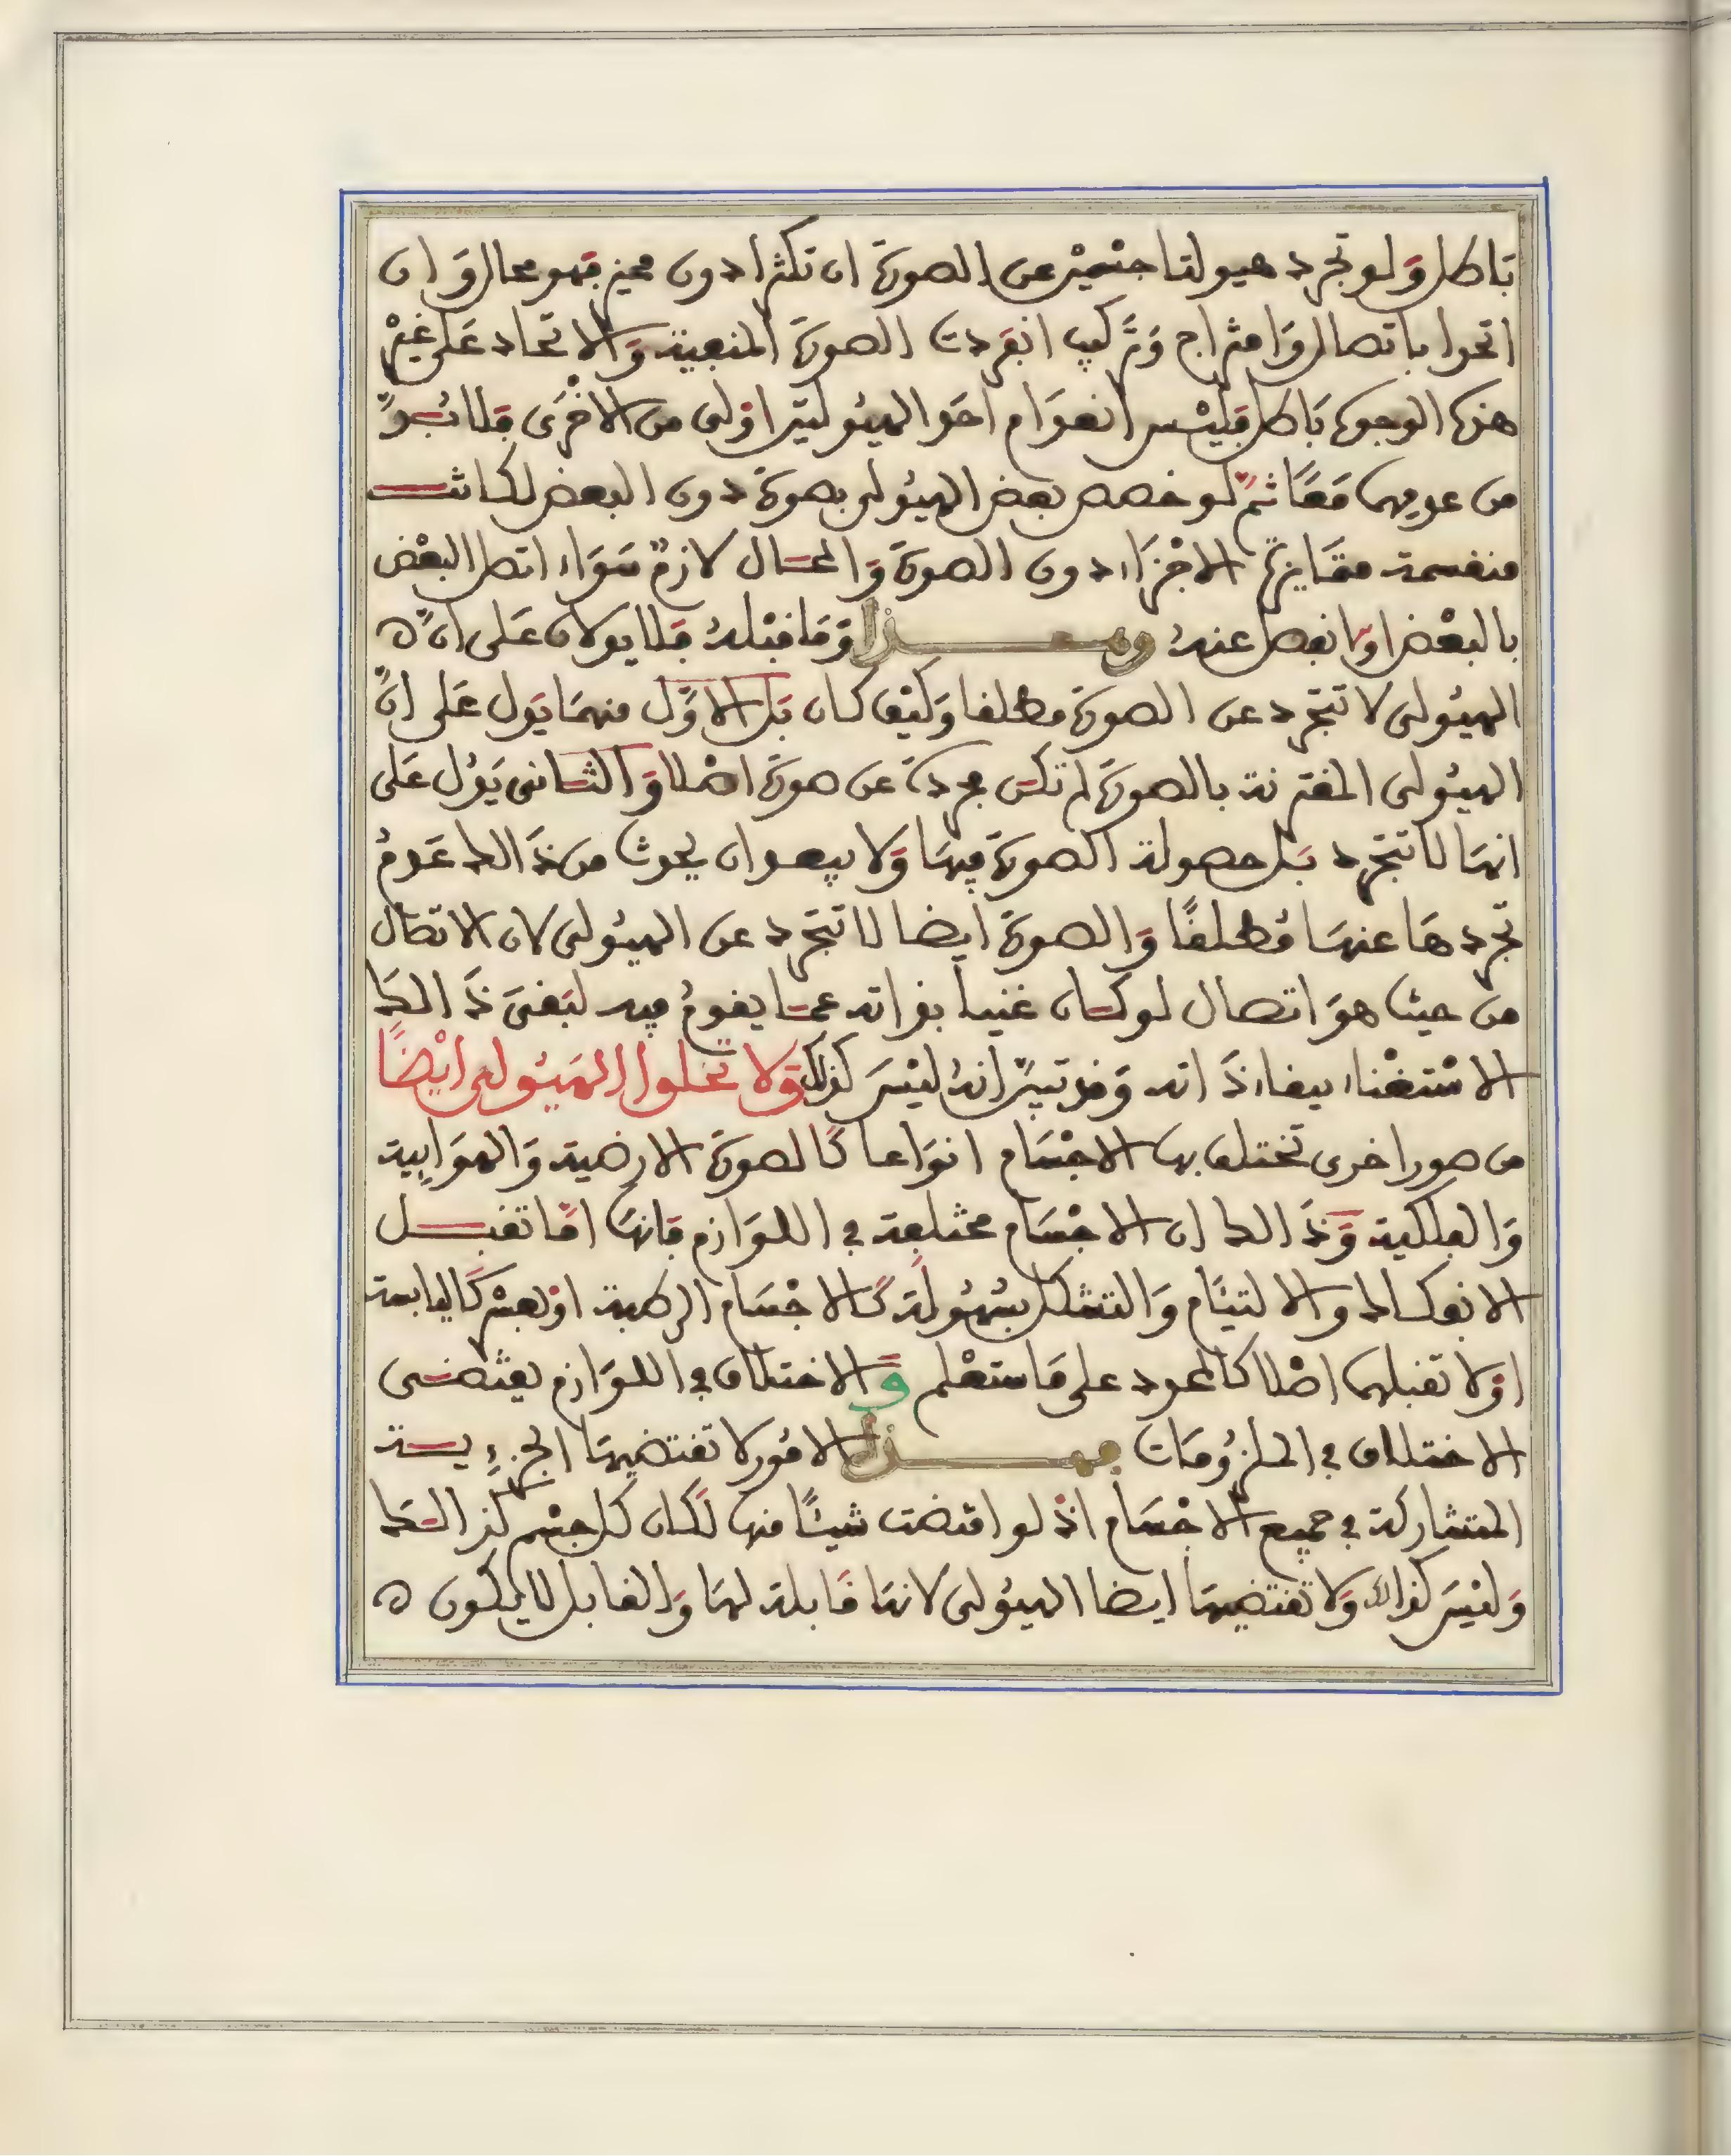 باطل ولو تجرد هيولتا جسمين عن الصورة ان تكثرا دون مميز فهو محال وان
اتحدا باتصال وامتزاج وتركيب انفردت الصورة المنفية والاتحاد على غير
هذه الوجوه باطل فليس انعدام احد الهيوليتين اولى من الاخرى فلا بد
من عدمهما معا ثم لو خصص بعض الهيولى بصورة دون البعض لكانت
منقسمة متمايزة الاجزاء دون الصورة والمحال لازم سواء اتصل البعض
بالبعض او انفصل عنه وهذا وما قبله فلا يدلان على ان
الهيولى لا تتجرد عن الصورة مطلقا وكيف كان بل الاول منهما يدل على ان
الهيولى المقترنة بالصورة لم تكن مجردة عن صورة اصلا والثاني يدل على
انها لا تتجرد بل حصولة الصورة فيها ولا يبعد ان يحدث من ذالك عدم
تجردها عنها مطلقا والصورة ايضا لا تتجرد عن الهيولى لان الاتصال
من حيث هو اتصال لو كان غنيا بذاته عما يقوم فيه لبقي ذالك
الاستغناء ببقاء ذاته وقد تبين انه ليس كذلك ولا تخلوا الهيولى ايضا
من صور اخرى تختلف بها الاجسام انواعا كالصورة الارضية والهوايية
والفلكية وذالك ان الاجسام مختلفة في اللوازم فانها اما تقبل
الانفكاك والالتيام والتشكل بسهولة كالاجسام الرطبة او بعسر كاليابسة
او لا تقبلهما اصلا كالمحدد على ما ستعلم والاختلاف في اللوازم يقتضى
الاختلاف في الملزومات فهذه الامور لا تقتضيها الجزءية
المتشاركة في جميع الاجسام اذ لو اقتضت شيئا منها لكان كل جسم كذالك
وليس كذالك ولا تقتضيها ايضا الهيولى لانها قابلة لها والقابل لا يكون